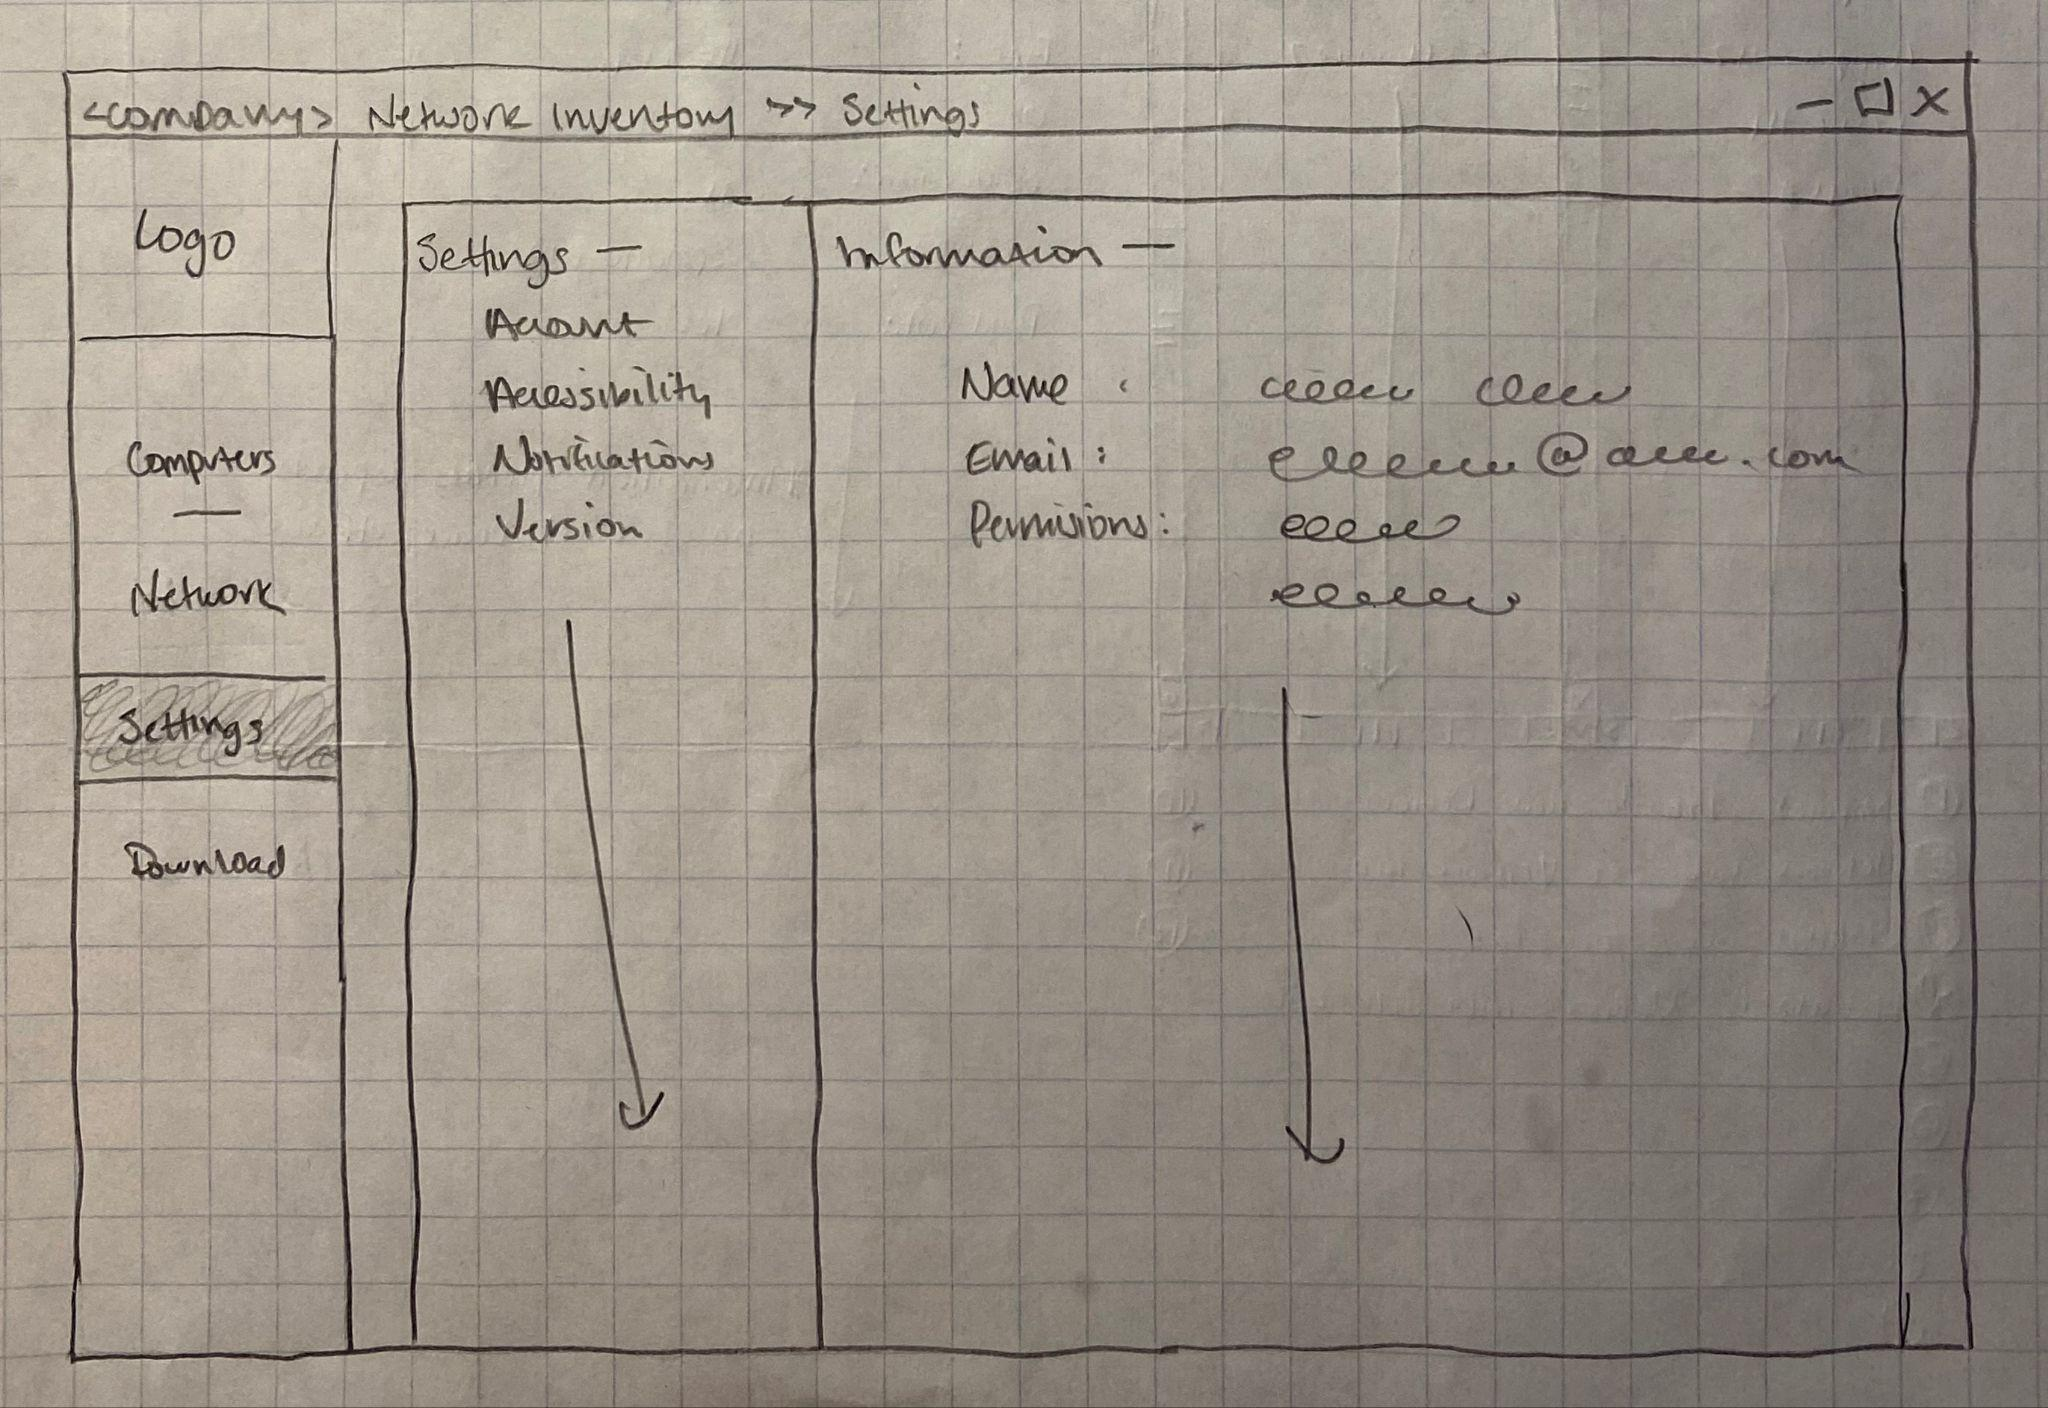 <company> Network Inventory >> Settings
Logo
Computers
Network
Settings
Download
Settings —
Account
Accessibility
Notifications
Version
Information —
Name :
Email : @ .com
Permisions :